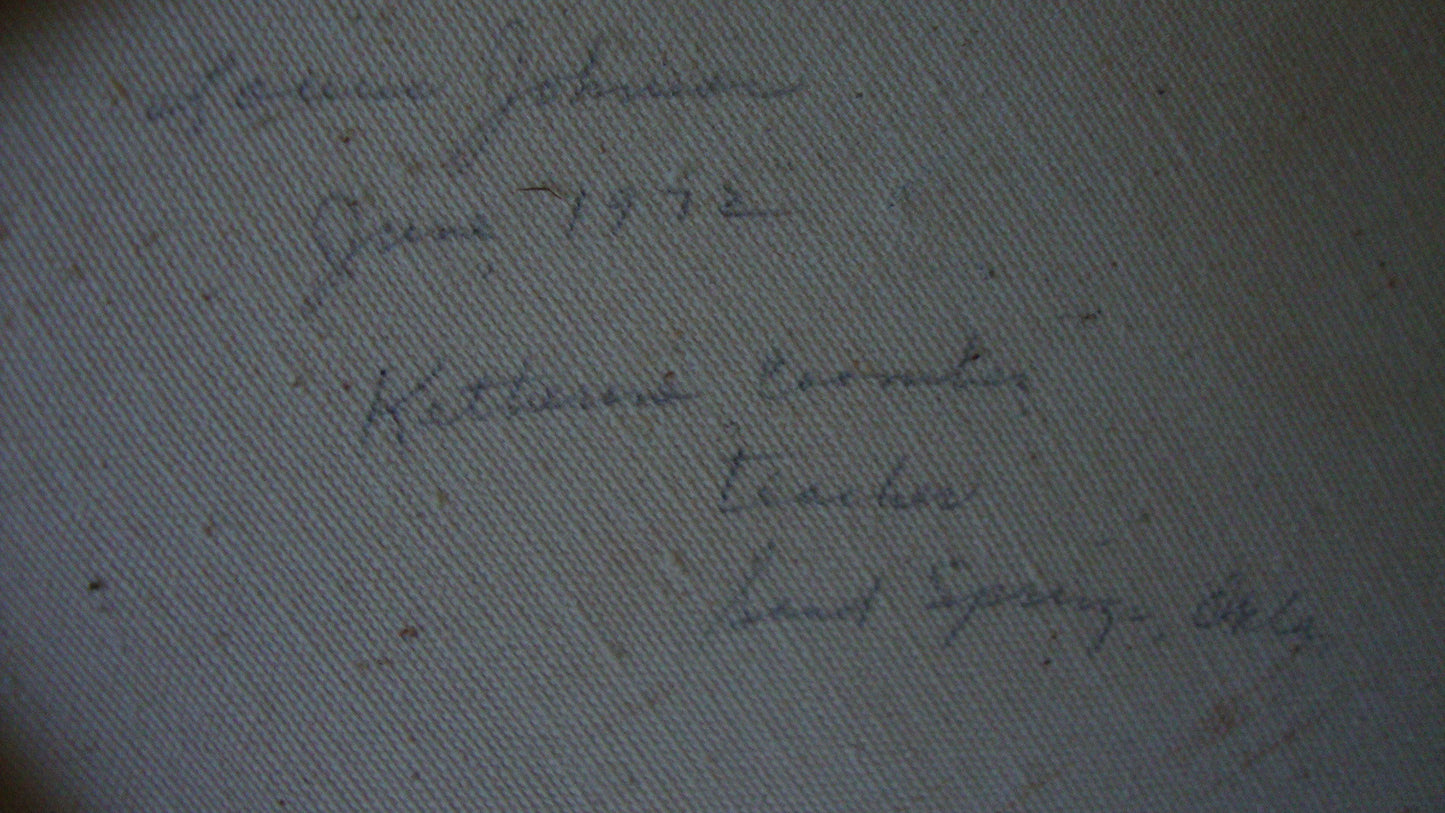 Johnson
June 1972
Katherine
Teacher
Sand Springs, Okla